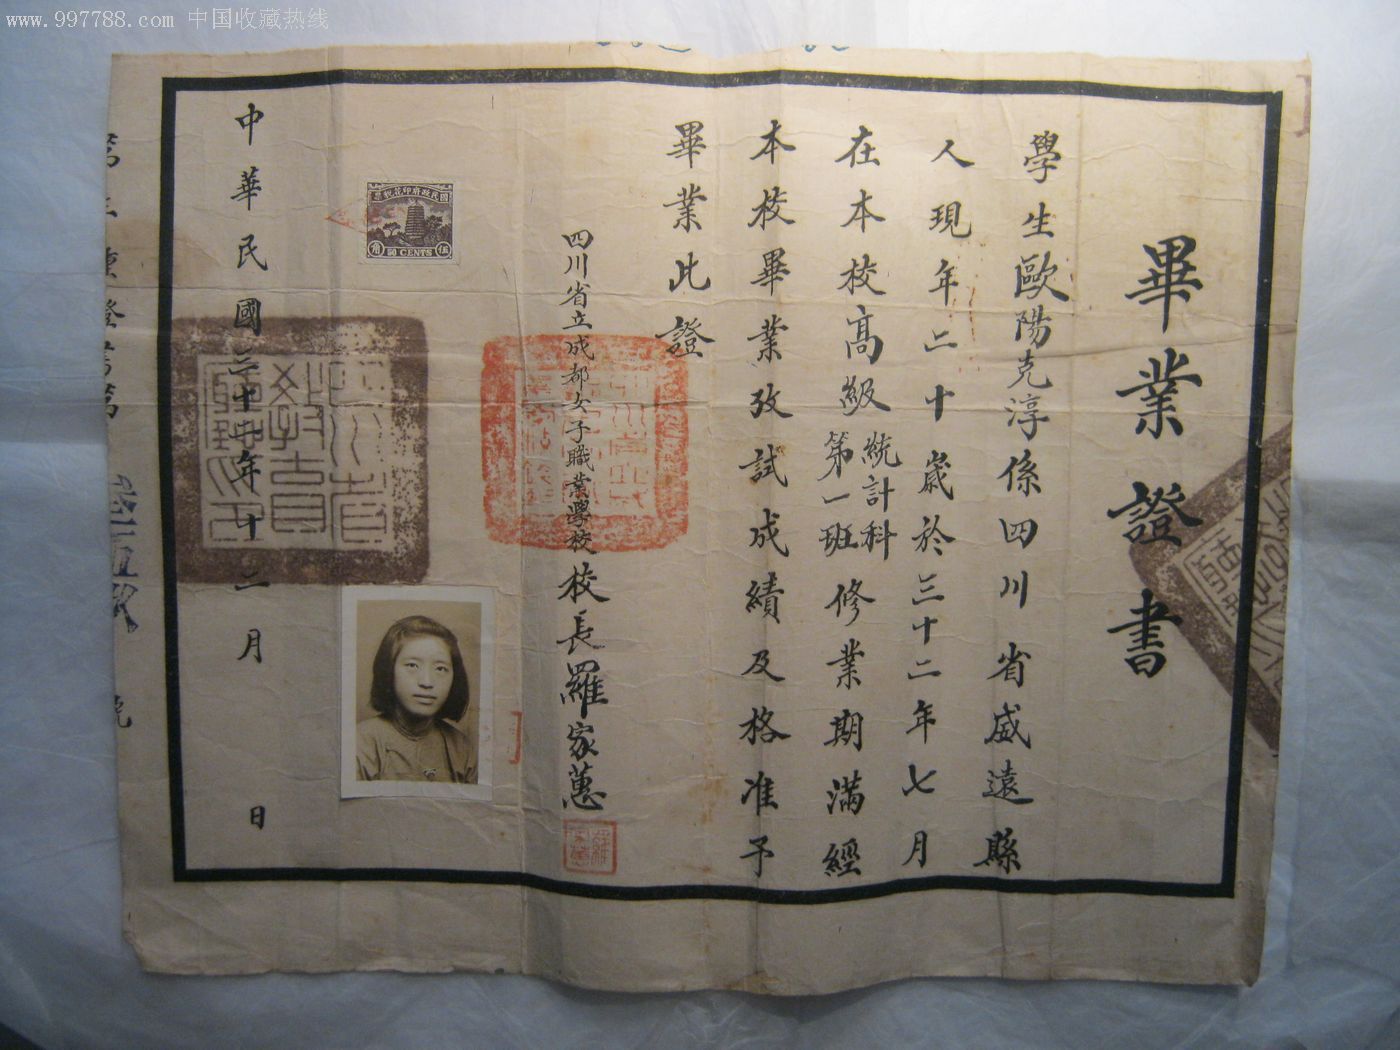 www.997788.com 中国收藏热线
畢業證書
學生歐陽克淳係四川省威遠縣
人現年二十歲於三十二年七月
在本校高級統計科第一班修業期滿經
本校畢業攷試成績及格准予
畢業此證
四川省立成都女子職業學校校長羅家蕙
國民政府印花稅票
伍角
50 CENTS
中華民國三十二年十二月 日